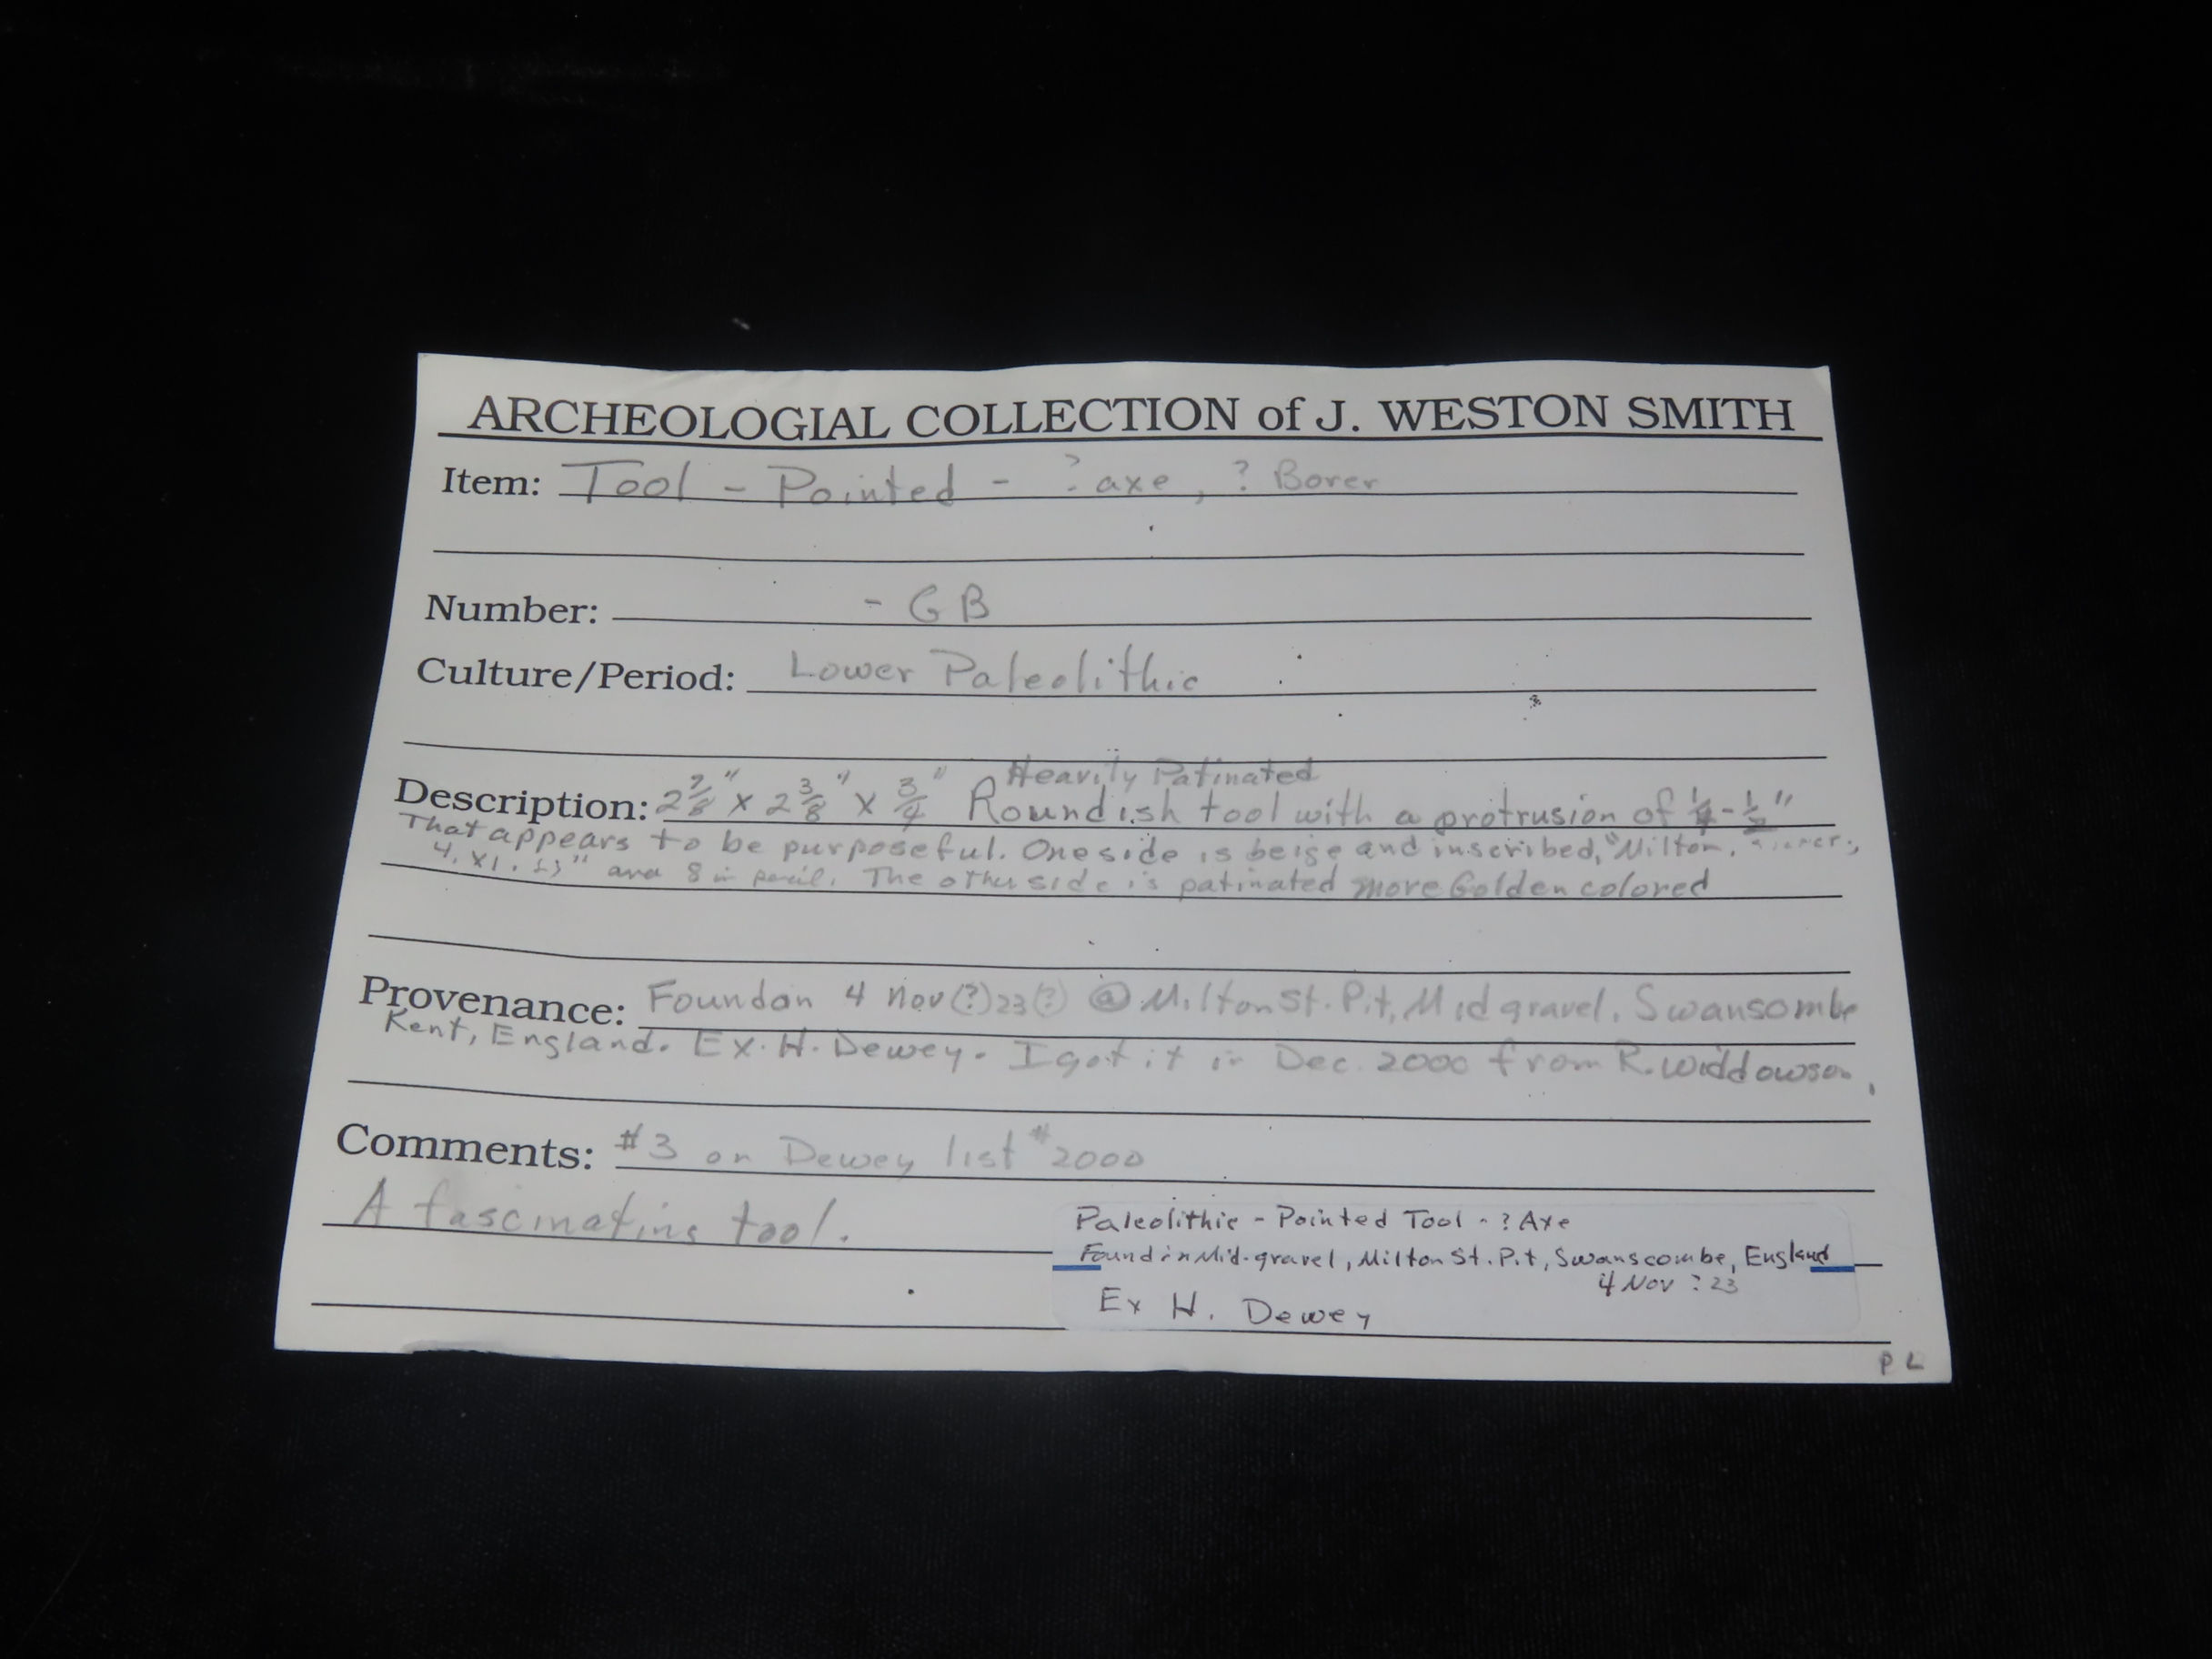 ARCHEOLOGIAL COLLECTION of J. WESTON SMITH
Item: Tool - Pointed - ? axe, ? Borer
Number: - GB
Culture/Period: Lower Paleolithic
Heavily Patinated
Description: 2 7/8" x 2 3/8" x 3/4" Roundish tool with a protrusion of 1/4 - 1/2"
That appears to be purposeful. One side is beige and inscribed, "Milton,
4. XI. 23" and 8 in pencil. The other side is patinated more Golden colored
Provenance: Found on 4 Nov(?) 23(?) @ Milton St. Pit, Mid gravel, Swansombe
Kent, England. Ex. H. Dewey. I got it in Dec. 2000 from R. Widdowson.
Comments: #3 on Dewey list #2000
A fascinating tool.
Paleolithic - Pointed Tool - ? Axe
Found in Mid-gravel, Milton St. Pit, Swanscombe, England
4 Nov ? 23
Ex H. Dewey
PL